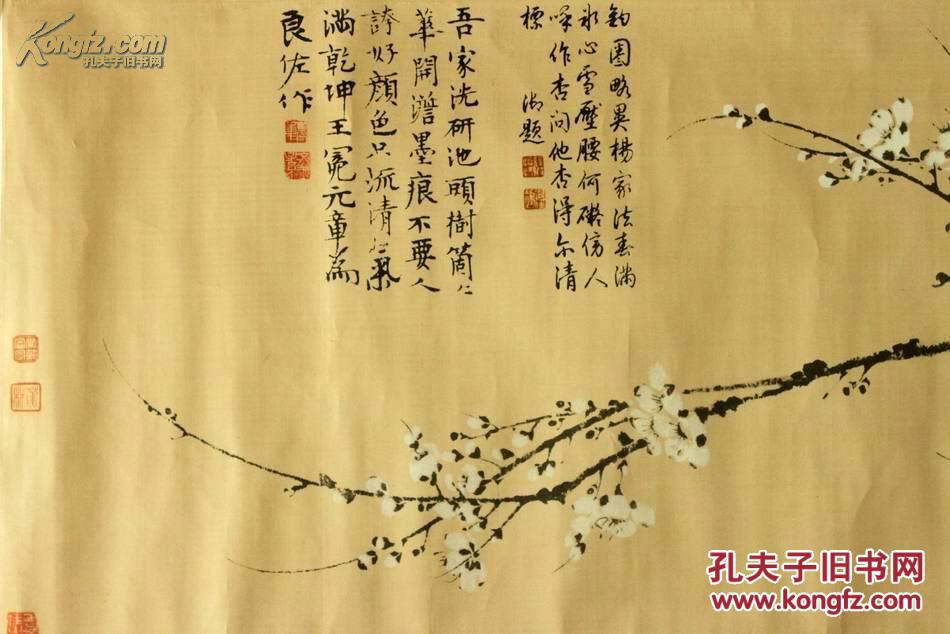 鈎圈略異楊家法春滿
氷心雪壓腰何礙傍人
喚作杏問他杏得尓清
標
御題
吾家洗研池頭樹箇〻
華開澹墨痕不要人
誇好顔色只流清氣
滿乾坤王冕元章為
良佐作
Kongfz.com
孔夫子旧书网
孔夫子旧书网
www.kongfz.com